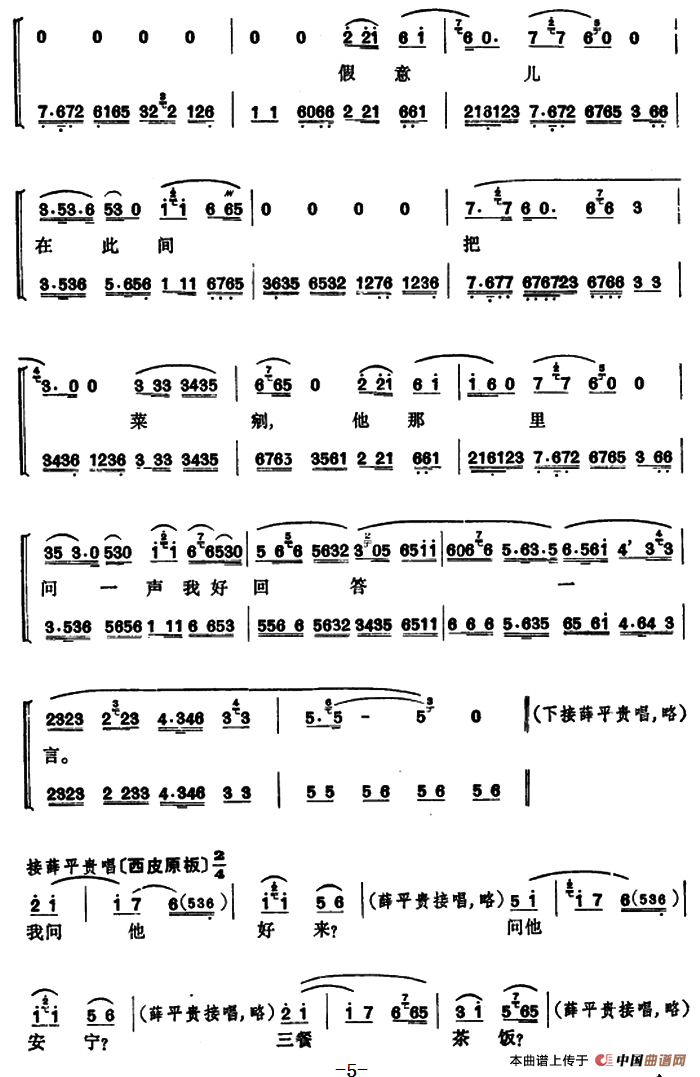 0 0 0 0 | 0 0 2 21 6 1 | 7 60. 7 2 7 5 60 0
假 意 儿
7.672 6165 32 3 2 126 | 1 1 6066 2 21 661 | 218123 7.672 6765 3 66
3.53.6 53 0 1 2 1 6 65 | 0 0 0 0 | 7. 2 7 60. 6 7 6 3
在 此 间 把
3.536 5.656 1 11 6765 | 3635 6532 1276 1236 | 7.677 676723 6766 3 3
4 3. 0 0 3 33 3435 | 6 7 65 0 2 21 6 1 | 1 60 7 2 7 5 60 0
菜 剜, 他 那 里
3436 1236 3 33 3435 | 6763 3561 2 21 661 | 216123 7.672 6765 3 66
35 3.0 530 1 2 1 6 7 6530 | 5 6 5 6 5632 3 05 6511 | 606 7 6 5.63.5 | 6.561 4' 3 4 3
问 一 声 我 好 回 答 一
3.536 5656 1 11 6 653 | 556 6 5632 3435 6511 | 6 6 6 5.635 65 61 4.64 3
2323 2 3 23 4.346 3 4 3 | 5. 6 5 - 5 3 0 ‖ (下接薛平贵唱,略)
言。
2323 2 233 4.346 3 3 | 5 5 5 6 5 6 5 6
接薛平贵唱〔西皮原板〕2/4
2 1 | 1 7 6(536) | 1 2 1 5 6 | (薛平贵接唱,略) 5 1 | 1 2 1 7 6(536)
我问 他 好 来? 问他
1 2 1 5 6 | (薛平贵接唱,略) 2 1 | 1 7 6 7 65 | 3 1 5 7 65 | (薛平贵接唱,略)
安 宁? 三餐 茶 饭?
本曲谱上传于 中国曲谱网
-5-